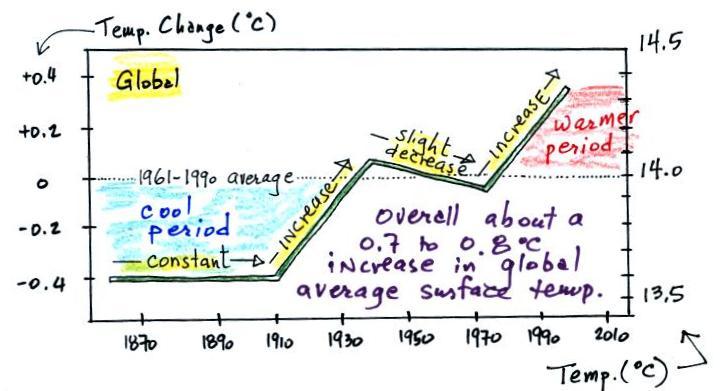 Temp. Change (°C)
+0.4
+0.2
0
-0.2
-0.4
Global
1961-1990 average
cool
period
constant
increase
slight
decrease
increase
warmer
period
overall about a
0.7 to 0.8 °C
increase in global
average surface temp.
14.5
14.0
13.5
1870 1890 1910 1930 1950 1970 1990 2010
Temp. (°C)